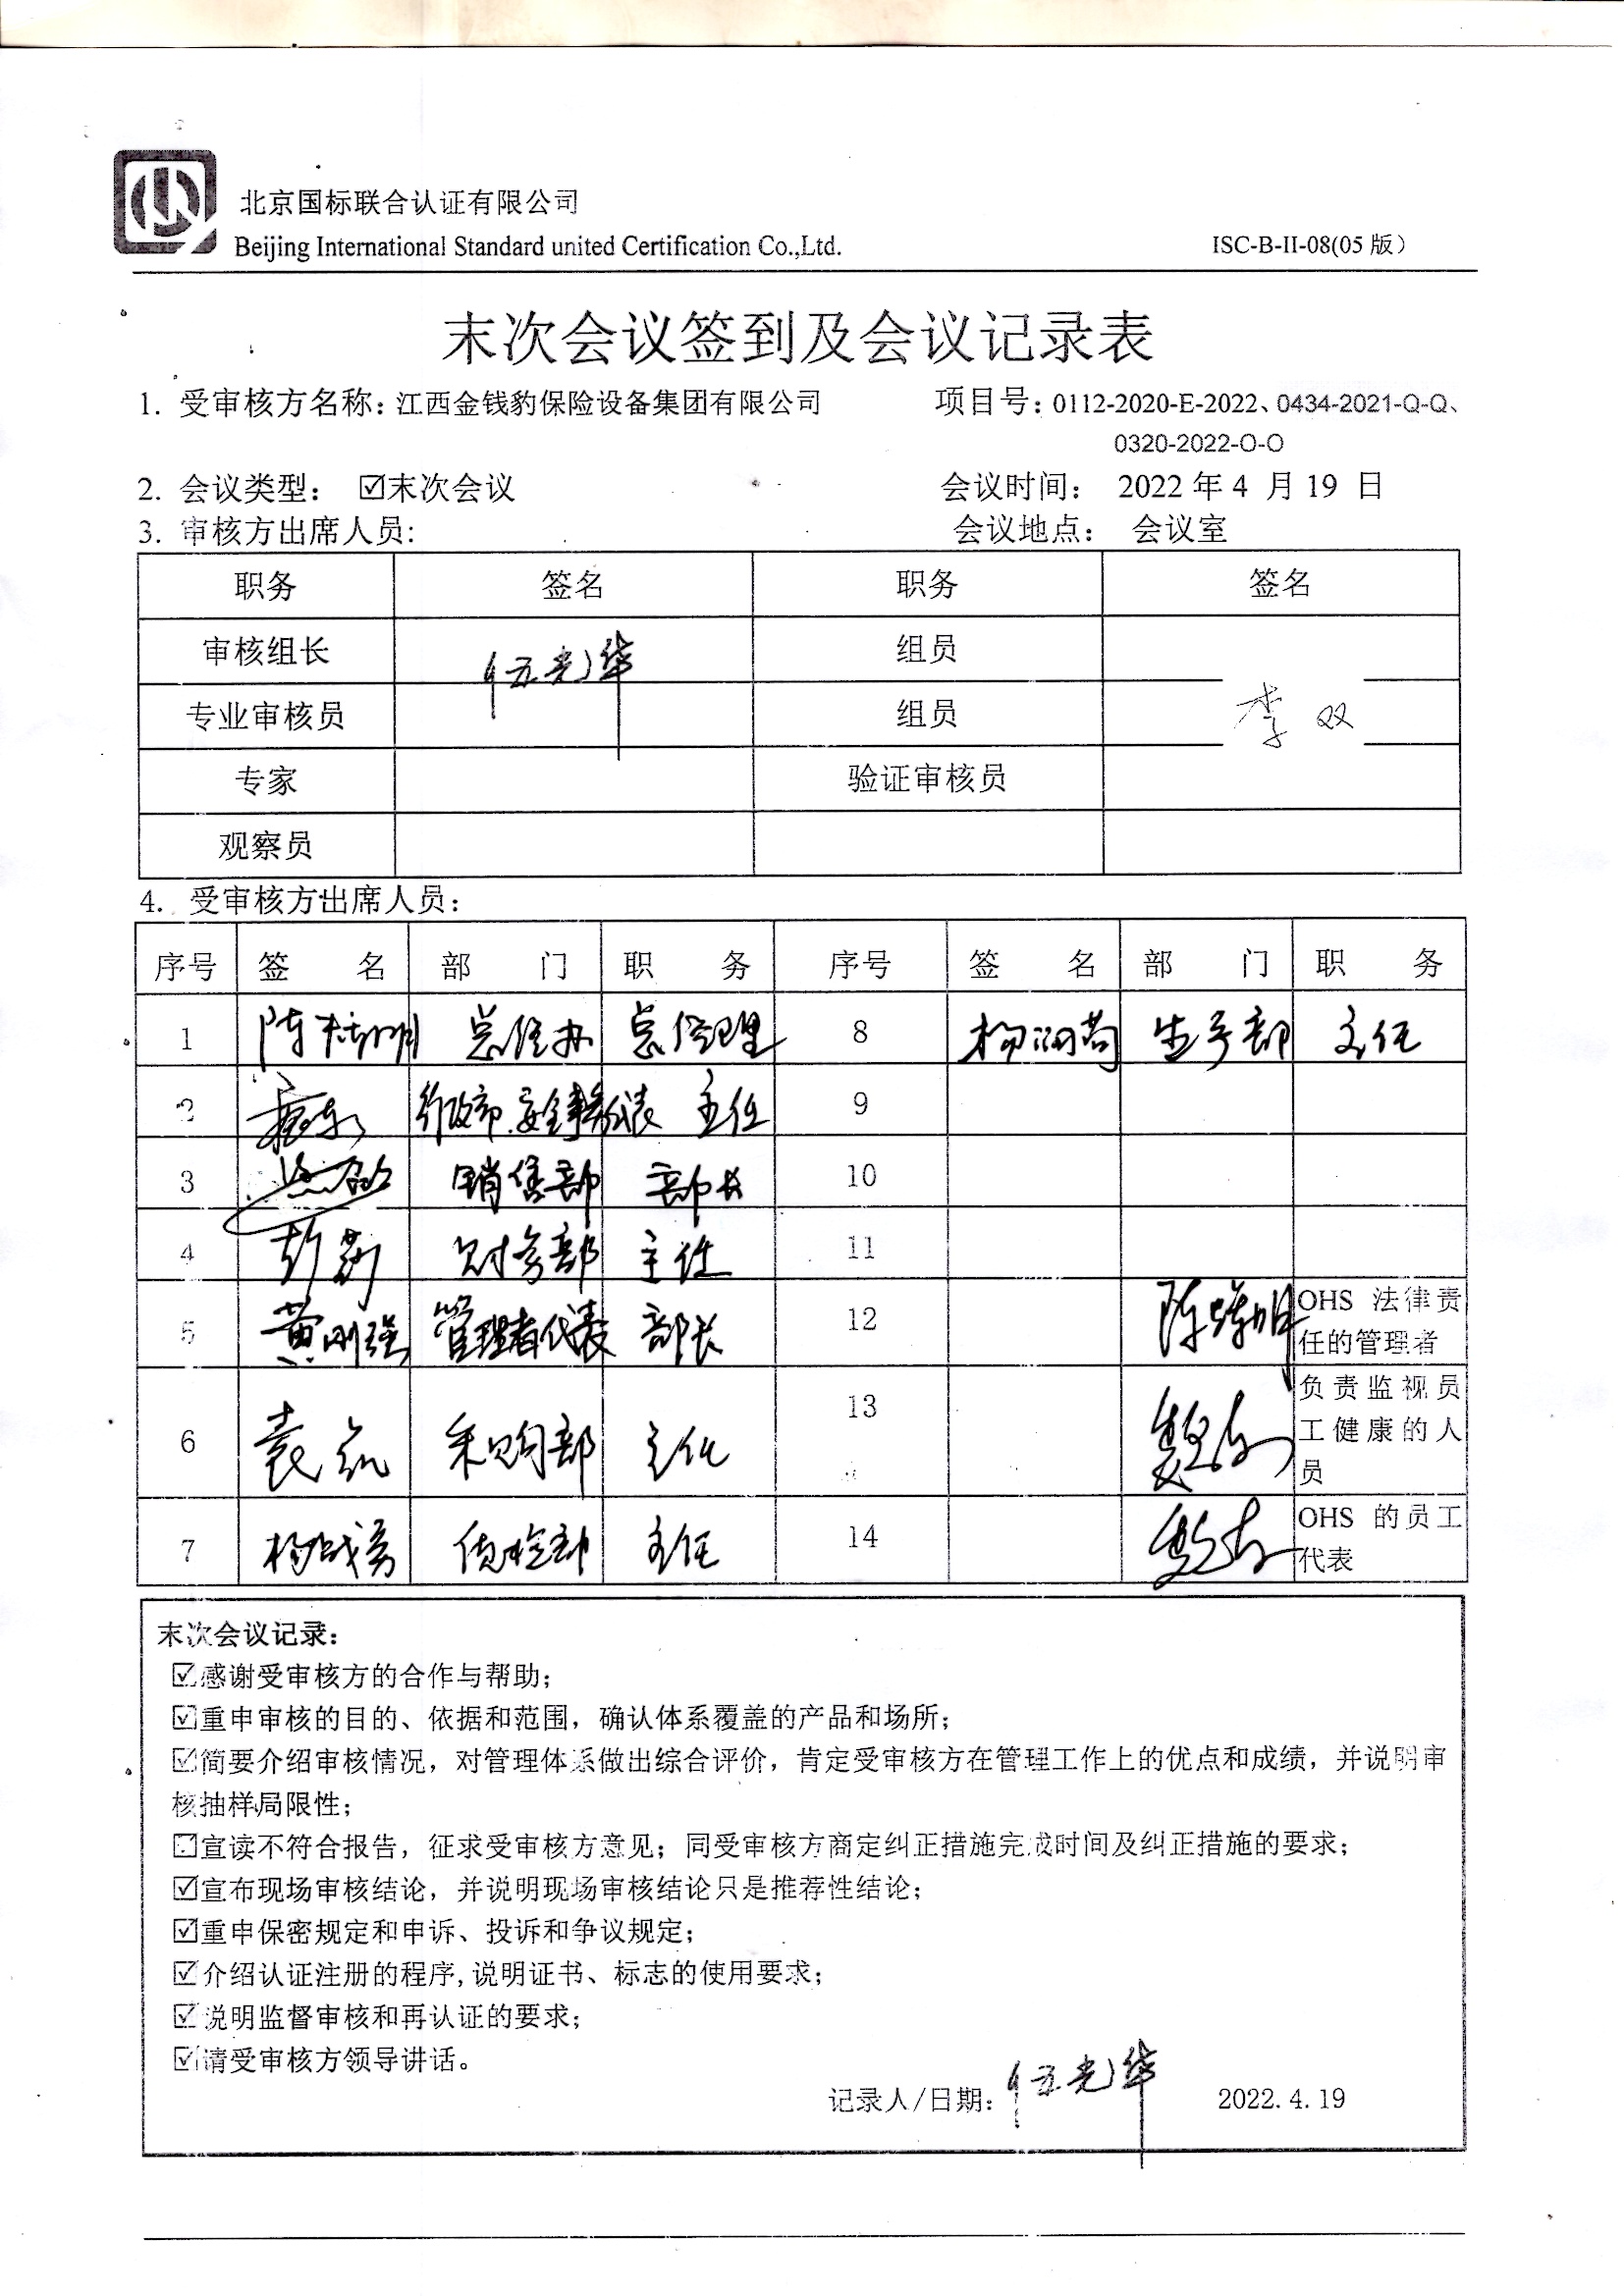 北京国标联合认证有限公司
Beijing International Standard united Certification Co.,Ltd.
ISC-B-II-08(05 版)
末次会议签到及会议记录表
1. 受审核方名称：江西金钱豹保险设备集团有限公司 项目号：0112-2020-E-2022、0434-2021-Q-Q、
0320-2022-O-O
2. 会议类型： ☑末次会议 会议时间： 2022 年 4 月 19 日
3. 审核方出席人员: 会议地点： 会议室
职务 签名 职务 签名
审核组长 伍光华 组员
专业审核员 组员 李双
专家 验证审核员
观察员
4. 受审核方出席人员：
序号 签 名 部 门 职 务 序号 签 名 部 门 职 务
1 总经办 总经理 8 生产部 主任
2 行政部.安全事务代表 主任 9
3 销售部 部长 10
4 彭莉 财务部 主任 11
5 黄刚强 管理者代表 部长 12 OHS 法律责
任的管理者
6 采购部 主任 13 负责监视员
工健康的人
员
7 质检部 主任 14 OHS 的员工
代表
末次会议记录：
☑感谢受审核方的合作与帮助；
☑重申审核的目的、依据和范围，确认体系覆盖的产品和场所；
☑简要介绍审核情况，对管理体系做出综合评价，肯定受审核方在管理工作上的优点和成绩，并说明审
核抽样局限性；
☐宣读不符合报告，征求受审核方意见；同受审核方商定纠正措施完成时间及纠正措施的要求；
☑宣布现场审核结论，并说明现场审核结论只是推荐性结论；
☑重申保密规定和申诉、投诉和争议规定；
☑介绍认证注册的程序,说明证书、标志的使用要求；
☑说明监督审核和再认证的要求；
☑请受审核方领导讲话。
记录人/日期：伍光华 2022.4.19